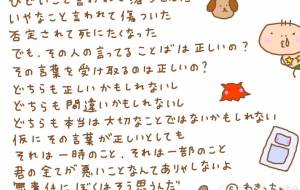 いやなこと言われて傷ついた
否定されて死にたくなった
でも、その人の言ってることばは正しいの?
その言葉を受け取るのは正しいの?
どちらも正しいかもしれない
どちらも間違いかもしれない
どちらも本当は大切なことではないかもしれない
仮にその言葉が正しいとしても
それは一時のこと、それは一部のこと
君の全てが悪いことなんてありゃしないよ
ぼくはそう思うんだ